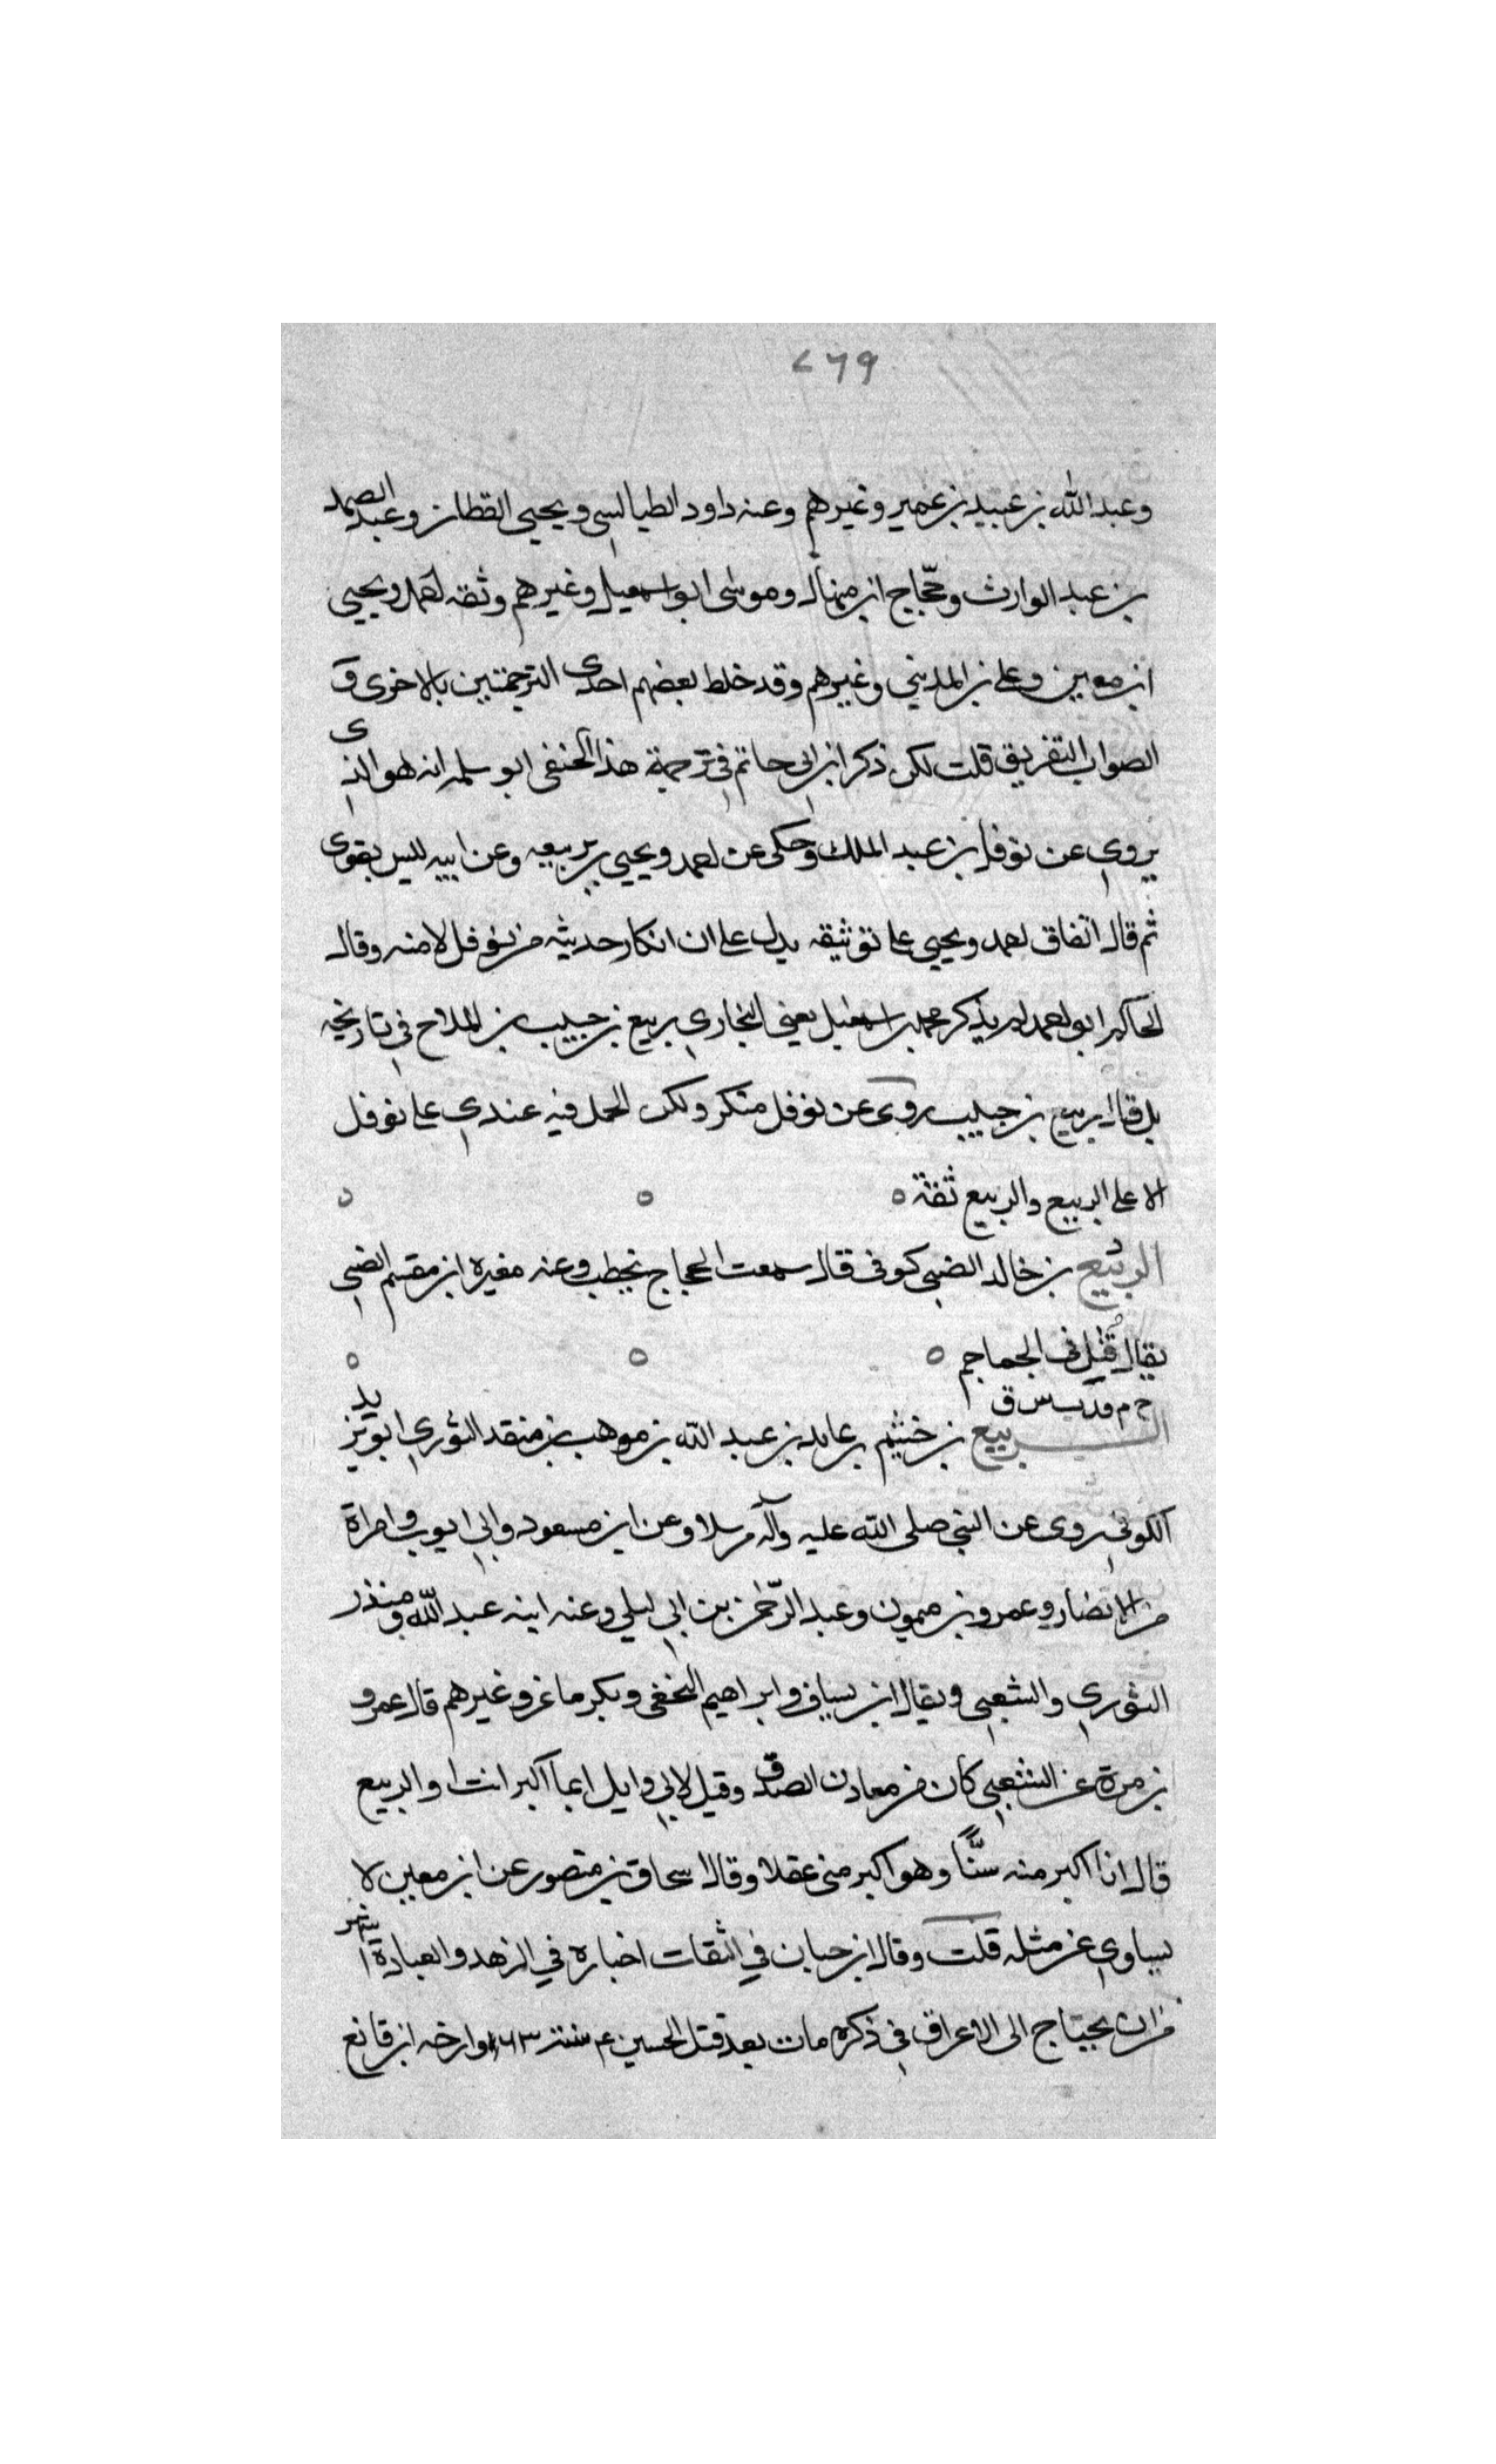 ٢٦٩
وعبد الله بن عبيد بن عمير وغيرهم وعنه داود الطيالسي ويحيى القطان وعبد الصمد
بن عبد الوارث وحجّاج ابن منهال وموسى ابو اسمعيل وغيرهم وثقه احمد ويحيى
ابن معين وعلي بن المديني وغيرهم وقد خلط بعضهم احدى الترجمتين بالاخرى و
الصواب التفريق قلت لكن ذكر ابن ابي حاتم في ترجمة هذا الحنفي ابو سلمه انه هو الذى
يروي عن نوفل بن عبد الملك وحكى عن احمد ويحيى بن ربيعه وعن ابيه ليس بقوى
ثم قال اتفاق احمد ويحيى على توثيقه يدل على ان انكار حديثه من نوفل لا منه وقال
الحاكم ابو احمد لم يذكر محمد بن اسمعيل يعني البخاري ربيع بن حبيب بن الملاح في تاريخه
بل قال ربيع بن حبيب روى عن نوفل منكر ولكن الحمل فيه عندي على نوفل
لا على الربيع والربيع ثقة
الربيع بن خالد الضبي كوفى قال سمعت الحجاج يخطب وعنه مغيرة ابن مقسم الضبي
يقال قُتِل في الجماجم
خ م قد ت س ق
الربيع بن خثيم بن عايد بن عبد الله بن موهب بن منقذ الثوري ابو يزيد
الكوفي روى عن النبي صلى الله عليه وآله مرسلا وعن ابن مسعود وابي ايوب وامراة
من الانصار وعمرو بن ميمون وعبد الرّحمٰن بن ابي ليلى وعنه ابنه عبد الله ومنذر
الثوري والشعبي ويقال ابن يساف وابراهيم النخعى وبكر ماعز وغيرهم قال عمرو
بن مرة عن الشعبي كان من معادن الصدق وقيل لابي وايل ايما اكبر انت او الربيع
قال انا اكبر منه سنًّا وهو اكبر مني عقلا وقال اسحاق بن منصور عن ابن معين لا
يساوي عن مثله قلت وقال ابن حبان في الثقات اخباره في الزهد والعبادة اشهر
من ان يحتاج الى الاعراق في ذكره مات بعد قتل الحسين ع سنة ٦٣ وارخه ابن قانع